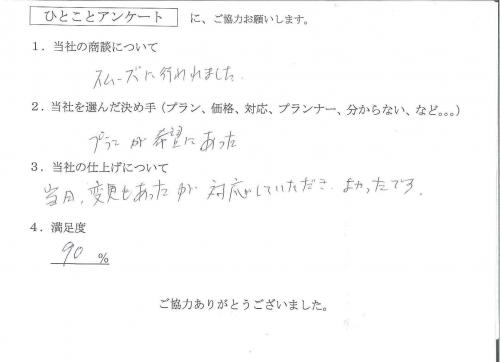 ひとことアンケート に、ご協力お願いします。
1．当社の商談について
スムーズに行われました.
2．当社を選んだ決め手（プラン、価格、対応、プランナー、分からない、など｡｡｡）
プランが希望にあった
3．当社の仕上げについて
当日、変更もあったが対応していただき、よかったです.
4．満足度
90 %
ご協力ありがとうございました。